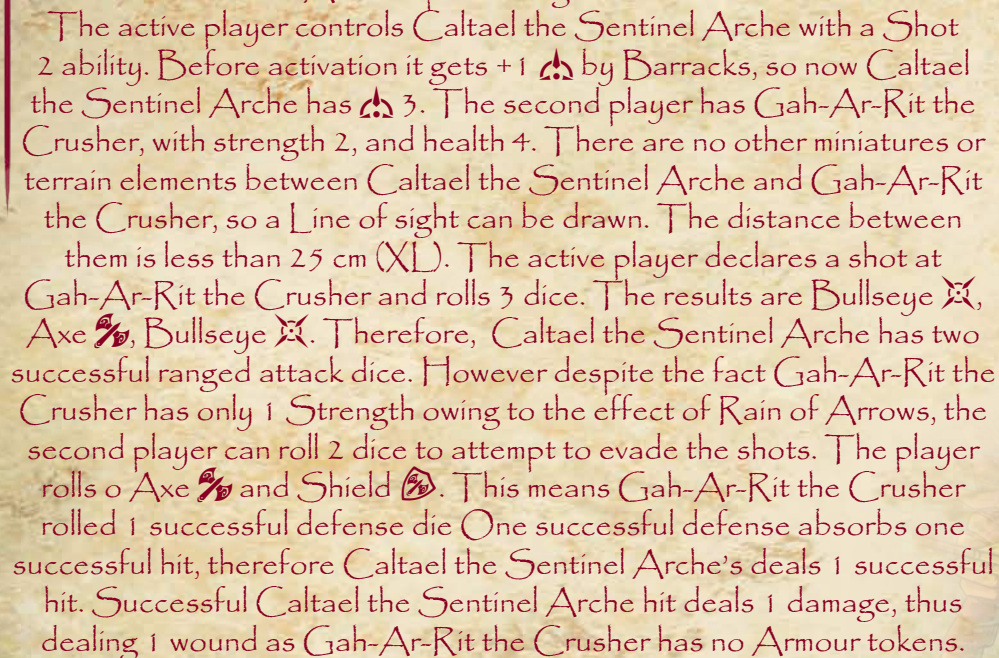 The active player controls Caltael the Sentinel Arche with a Shot
2 ability. Before activation it gets +1 by Barracks, so now Caltael
the Sentinel Arche has 3. The second player has Gah-Ar-Rit the
Crusher, with strength 2, and health 4. There are no other miniatures or
terrain elements between Caltael the Sentinel Arche and Gah-Ar-Rit
the Crusher, so a Line of sight can be drawn. The distance between
them is less than 25 cm (XL). The active player declares a shot at
Gah-Ar-Rit the Crusher and rolls 3 dice. The results are Bullseye ,
Axe , Bullseye . Therefore, Caltael the Sentinel Arche has two
successful ranged attack dice. However despite the fact Gah-Ar-Rit the
Crusher has only 1 Strength owing to the effect of Rain of Arrows, the
second player can roll 2 dice to attempt to evade the shots. The player
rolls o Axe and Shield . This means Gah-Ar-Rit the Crusher
rolled 1 successful defense die One successful defense absorbs one
successful hit, therefore Caltael the Sentinel Arche's deals 1 successful
hit. Successful Caltael the Sentinel Arche hit deals 1 damage, thus
dealing 1 wound as Gah-Ar-Rit the Crusher has no Armour tokens.